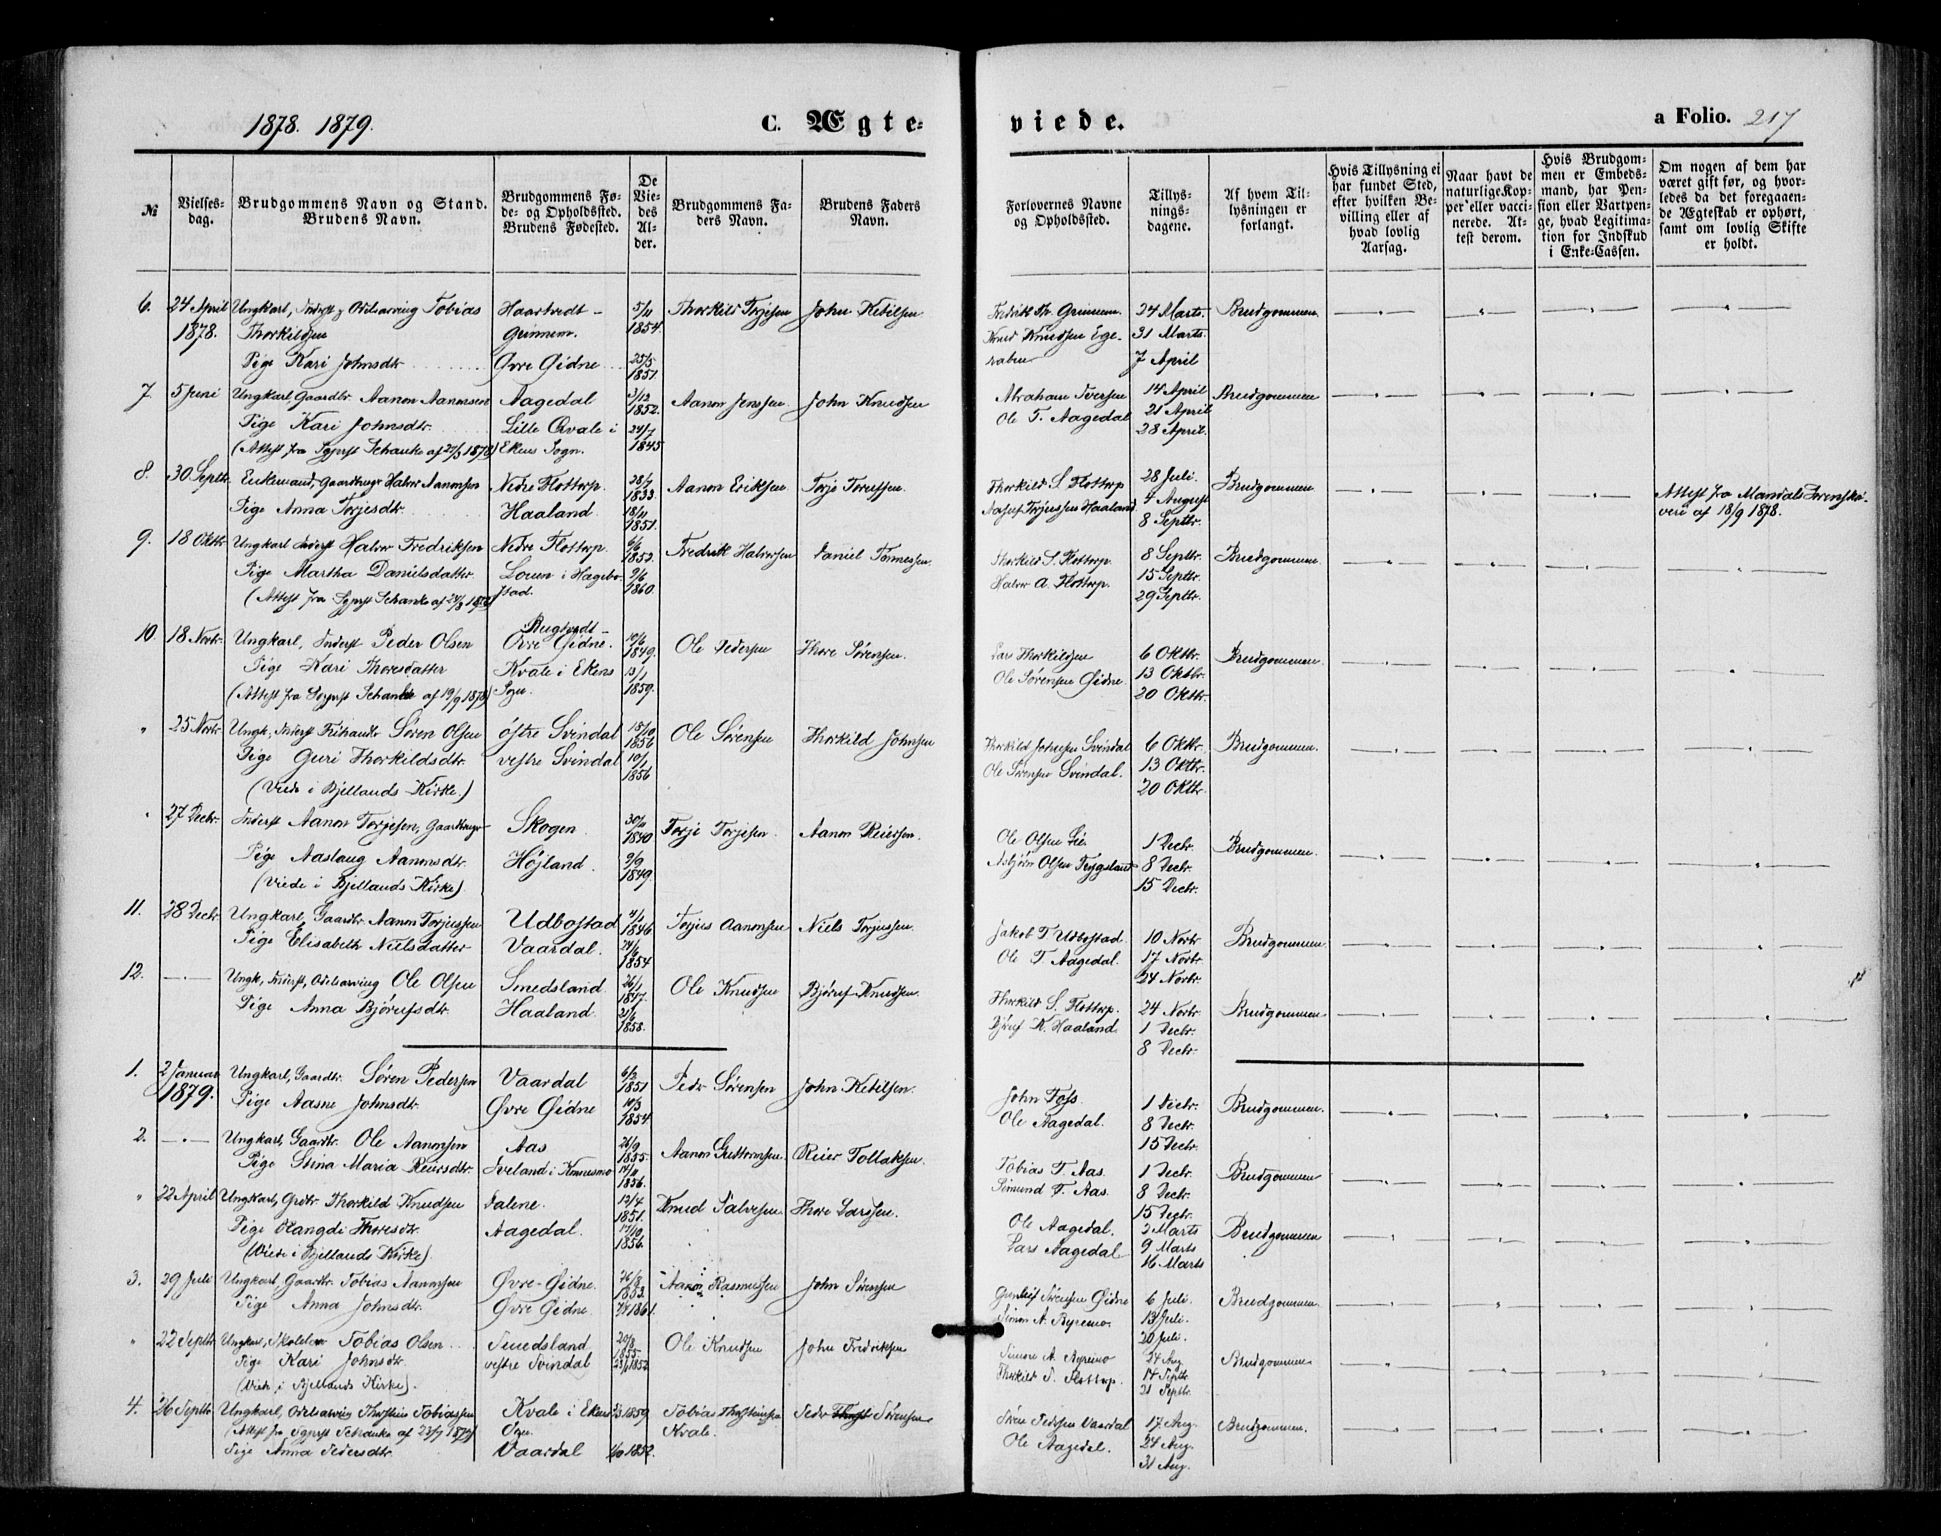 1878. 1879.
C. Ægte-
viede.
a Folio. 217
№
Vielses-
dag.
Brudgommens Navn og Stand.
Brudens Navn.
Brudgommens Fø-
de- og Opholdssted.
Brudens Fødested.
De
Vie-
des
Al-
der.
Brudgommens Fa-
ders Navn.
Brudens Faders
Navn.
Forlovernes Navne
og Opholdssted.
Tillys-
nings-
dagene.
Af hvem Til-
lysningen er
forlangt.
Hvis Tillysning ei
har fundet Sted,
efter hvilken Be-
villing eller af
hvad lovlig
Aarsag.
Naar havt de
naturlige Kop-
per eller vacci-
nerede. At-
test derom.
Hvis Brudgom-
men er Embeds-
mand, har Pen-
sion eller Vartpen-
ge, hvad Legitima-
tion for Indskud
i Enke-Cassen.
Om nogen af dem har
været gift før, og hvor-
ledes da det foregaaen-
de Ægteskab er ophørt,
samt om lovlig Skifte
er holdt.
6. 24 April Ungkarl, Inderst, Odelsarving Tobias Haartvedt - 5/11 Thorkild Torjesen John Ketilsen Fredrik Th. Grimnem. 24 Marts. Brudgommen
1878. Thorkildsen Grimnem. 1854. Knud Knudsen Ege- 31 Marts.
Pige Kari Johnsdtr. Øvre Eidne 25/5 1851. raben 7 April
7. 5 Juni Ungkarl, Gaardbr. Aanon Aanonsen Aagedal 3/12 1852. Aanon Jenssen John Knudsen Abraham Iversen 14 April Brudgommen
Pige Kari Johnsdtr. Lille Qvale i 24/7 1845 Ole T. Aagedal 21 April
(Attest fra Sgprst Schanke af 27/3 1878) Ekens Sogn. 28 April.
8. 30 Septbr. Enkemand, Gaardbruger Halvor Aanonsen Nedre Flottorp. 28/7 1833 Aanon Eriksen Torje Torjussen. Thorkild S. Flottorp 28 Juli. Brudgommen Attest fra Mandals Sorenskri-
Pige Anna Torjesdtr. Haaland 18/11 1851. Aasuf Torjussen Haaland 4 August veri af 18/9 1878.
8 Septbr.
9. 18 Oktbr. Ungkarl Inderst Halvor Fredriksen Nedre Flottorp. 6/6 1852. Fredrik Halvorsen Daniel Tønnessen. Thorkild S. Flottorp 8 Septbr. Brudgommen
Pige Martha Danielsdatter Louen i Hægebo- 9/6 1860. Halvor A. Flottorp. 15 Septbr.
(Attest fra Sgprst Schanke af 24/8 1878) stad. 29 Septbr.
10. 18 Novbr. Ungkarl, Inderst Peder Olsen Øvre Eidne. 10/6 1849. Ole Pedersen Thore Sørensen. Lars Thorkildsen 6 Oktbr. Brudgommen
Pige Kari Thoresdatter Kvale i Ekens 13/1 1859. Ole Sørensen Eidne 13 Oktbr.
(Attest fra Sogprst Schanke af 19/9 1878) Sogn. 20 Oktbr.
" 25 Novbr. Ungk, Inderst Søren Olsen østre Svindal 15/10 1856 Ole Sørensen Thorkild Johnsen Thorkild Johnsen Svindal 6 Oktbr. Brudgommen.
Pige Guri Thorkildsdtr. vestre Svindal 10/1 1856 Ole Sørensen Svindal. 13 Oktbr.
(Viede i Bjellands Kirke.) 20 Oktbr.
" 27 Decbr. Inderst Aanon Torjesen, Gaardbruger Skogen 30/11 1840 Torje Torjesen. Aanon Reiersen. Ole Olsen Lie 1 Decbr. Brudgommen.
Pige Aaslaug Aanonsdtr. Højland. 9/9 1849. Asbjørn Olsen Trygsland 8 Decbr.
(Viede i Bjellands Kirke). 15 Decbr.
11. 28 Decbr. Ungkarl, Gaardbr. Aanon Torjussen Udbostad 1846 Torjus Aanonsen Niels Torjussen. Jakob T. Udbostad 10 Novbr. Brudgommen.
Pige Elisabeth Nielsdatter Vaardal. 1854 Ole T. Aagedal. 17 Novbr.
24 Novbr.
12. Ungk, Inderst, Odelsarving Ole Olsen Smedsland 26/1 1847. Ole Knudsen Bjøruf Knudsen. Thorkild S. Flottorp. 24 Novbr. Brudgommen
Pige Anna Bjørufsdtr. Haaland 21/6 1858. Bjøruf K. Haaland 1 Decbr.
8 Decbr.
1. 2 Januar Ungkarl, Gaardbr. Søren Pedersen Vaardal 6/3 1851 Peder Sørensen John Ketilsen. John Foss. 1 Decbr. Brudgommen.
1879. Pige Aasne Johnsdtr. Øvre Eidne 10/3 1854. Ole Aagedal. 8 Decbr.
15 Decbr.
2. Ungkarl, Gaardbr. Ole Aanonsen Aas 26/9 1855 Aanon Guttormsen Reier Tollaksen. Tobias T. Aas. 1 Decbr. Brudgommen
Pige Stina Maria Reiersdtr. Sveland i Konsmo 14/11 1856. Simund T. Aas. 8 Decbr.
15 Decbr.
" 22 April Ungkarl, Grdbr. Thorkild Knudsen Dalene. 12/4 1851. Knud Salvesen Thore Larssen. Ole Aagedal. 2 Marts Brudgommen
Pige Rangdi Thoresdtr. Aagedal. 17/10 1856. Lars Aagedal 9 Marts
(Viede i Bjellands Kirke). 16 Marts
3. 29 Juli Ungkarl, Gaardbr. Tobias Aanonsen Øvre-Eidne. 26/8 1853. Aanon Rasmussen John Sørensen Gunleif Sørensen Eidne 6 Juli. Brudgommen.
Pige Anna Johnsdtr. Øvre Eidne 1861. Simon A. Byremo. 13 Juli.
20 Juli.
" 22 Septbr. Ungkarl, Skolelærer Tobias Olsen Smedsland 20/8 1855. Ole Knudsen John Fredriksen Simon A. Byremo 24 Aug. Brudgommen
Pige Kari Johnsdtr. vestre Svindal 1852. Thorkild S. Flottorp. 14 Septbr.
(Viede i Bjellands Kirke). 21 Septbr.
4. 26 Septbr. Ungkarl, Odelsarving Thorstein Tobiassen Kvale i Ekens 1859. Tobias Thorsteinsen Peder Sørensen Søren Pedersen Vaardal 17 Aug. Brudgommen.
(Attest fra Sgprst Schanke af 23/7 1879) Sogn. Kvale. Ole Aagedal. 24 Aug.
Pige Anna Pedersdtr. Vaardal 1852. 31 Aug.